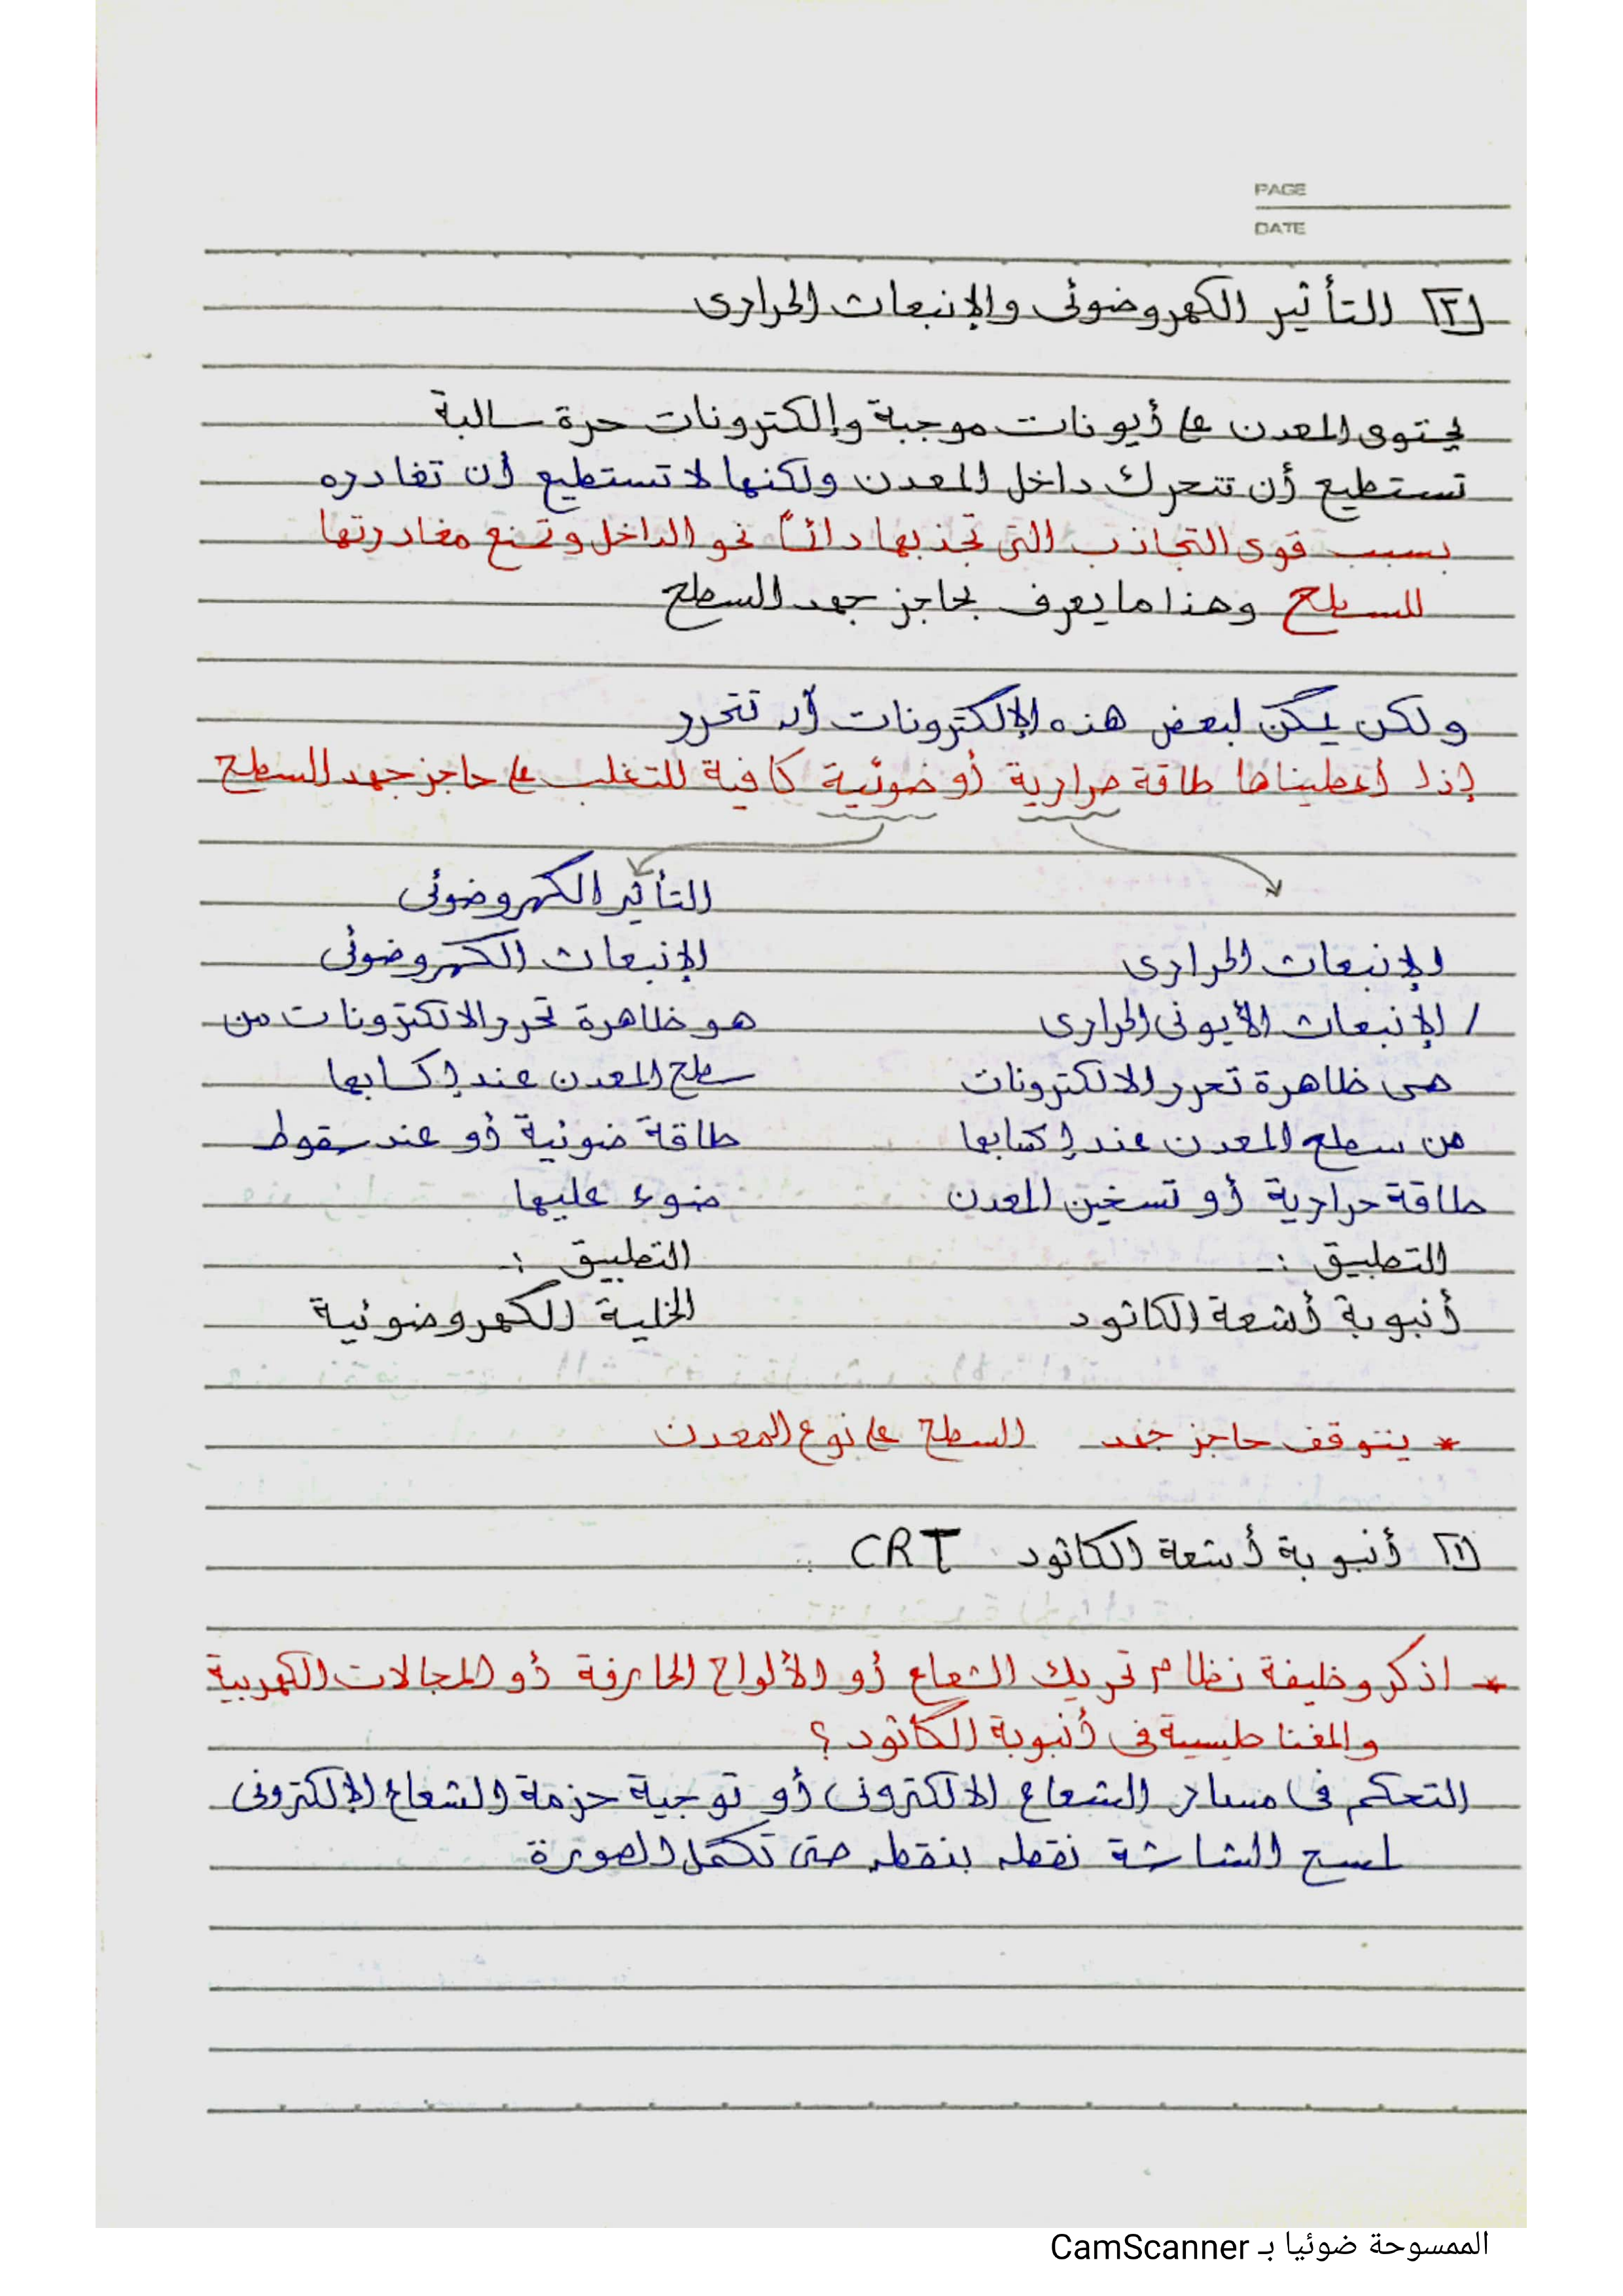 PAGE
DATE
[٢] التأثير الكهروضوئى والإنبعاث الحرارى
يحتوى المعدن على أيونات موجبة وإلكترونات حرة سالبة
تستطيع أن تتحرك داخل المعدن ولكنها لا تستطيع أن تغادره
بسبب قوى التجاذب التى تجذبها دائماً نحو الداخل وتمنع مغادرتها
للسطح وهذا ما يعرف بحاجز جهد السطح
ولكن يمكن لبعض هذه الإلكترونات أن تتحرر
إذا أعطيناها طاقة حرارية أو ضوئية كافية للتغلب على حاجز جهد السطح
التأثير الكهروضوئى
الإنبعاث الحرارى
/ الإنبعاث الأيونى الحرارى
هى ظاهرة تحرر الالكترونات
من سطح المعدن عند إكتابها
طاقة حرارية أو تسخين المعدن
التطبيق :-
أنبوبة أشعة الكاثود
الإنبعاث الكهروضوئى
هو ظاهرة تحرر الالكترونات من
سطح المعدن عند إكسابها
طاقة ضوئية أو عند سقوط
ضوء عليها
التطبيق :-
الخلية الكهروضوئية
* يتوقف حاجز جهد السطح على نوع المعدن
[١] أنبوبة أشعة الكاثود CRT
* اذكر وظيفة نظام تحريك الشعاع أو الألواح الحارفة أو المجالات الكهربية
والمغناطيسية فى أنبوبة الكاثود ؟
التحكم فى مسار الشعاع الالكترونى أو توجية حزمة الشعاع الإلكترونى
لمسح الشاشة نقطه بنقطه حتى تكمل الصورة
الممسوحة ضوئيا بـ CamScanner